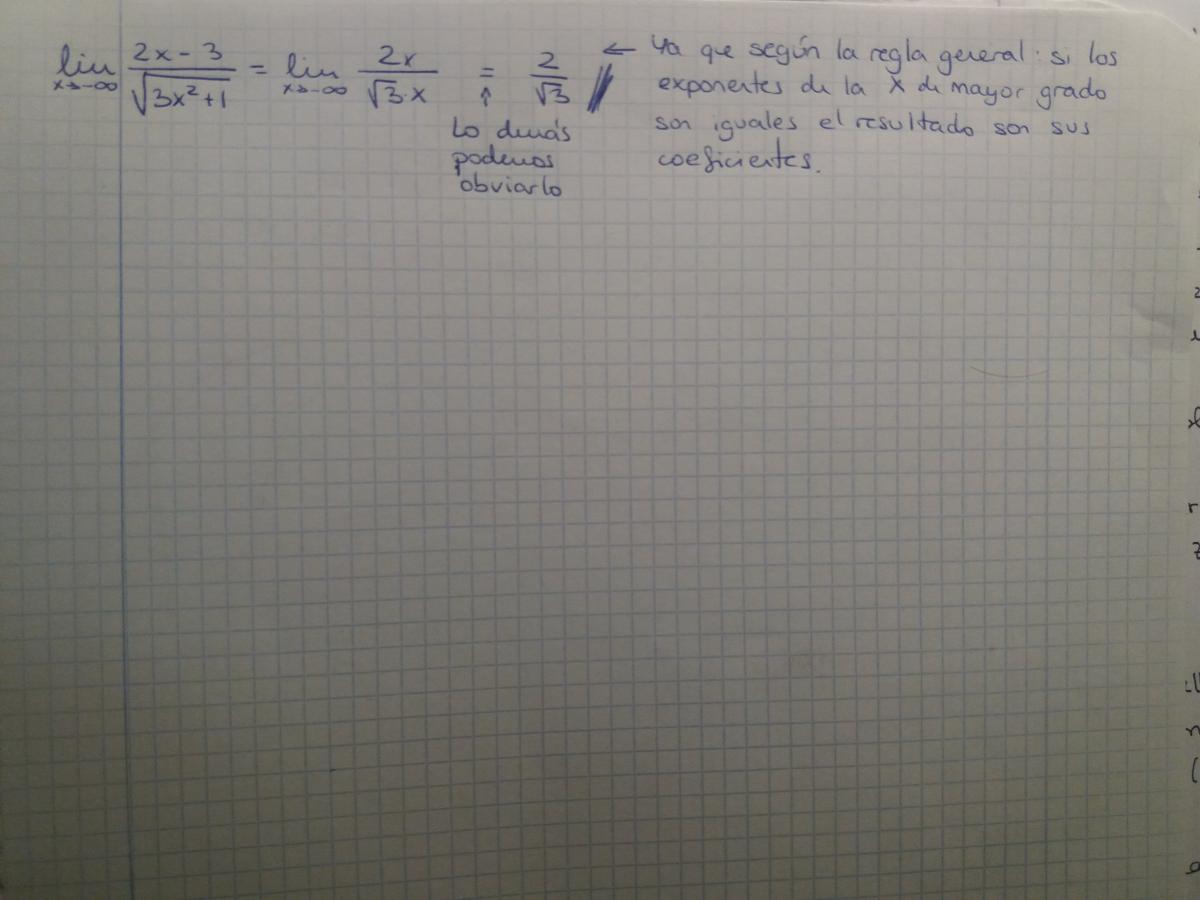 lim x→-∞ (2x - 3)/√(3x²+1) = lim x→-∞ 2x/(√3·x) = 2/√3 // ← Ya que según la regla general: si los
exponentes de la x de mayor grado
son iguales el resultado son sus
coeficientes.
↑
Lo demás
podemos
obviarlo